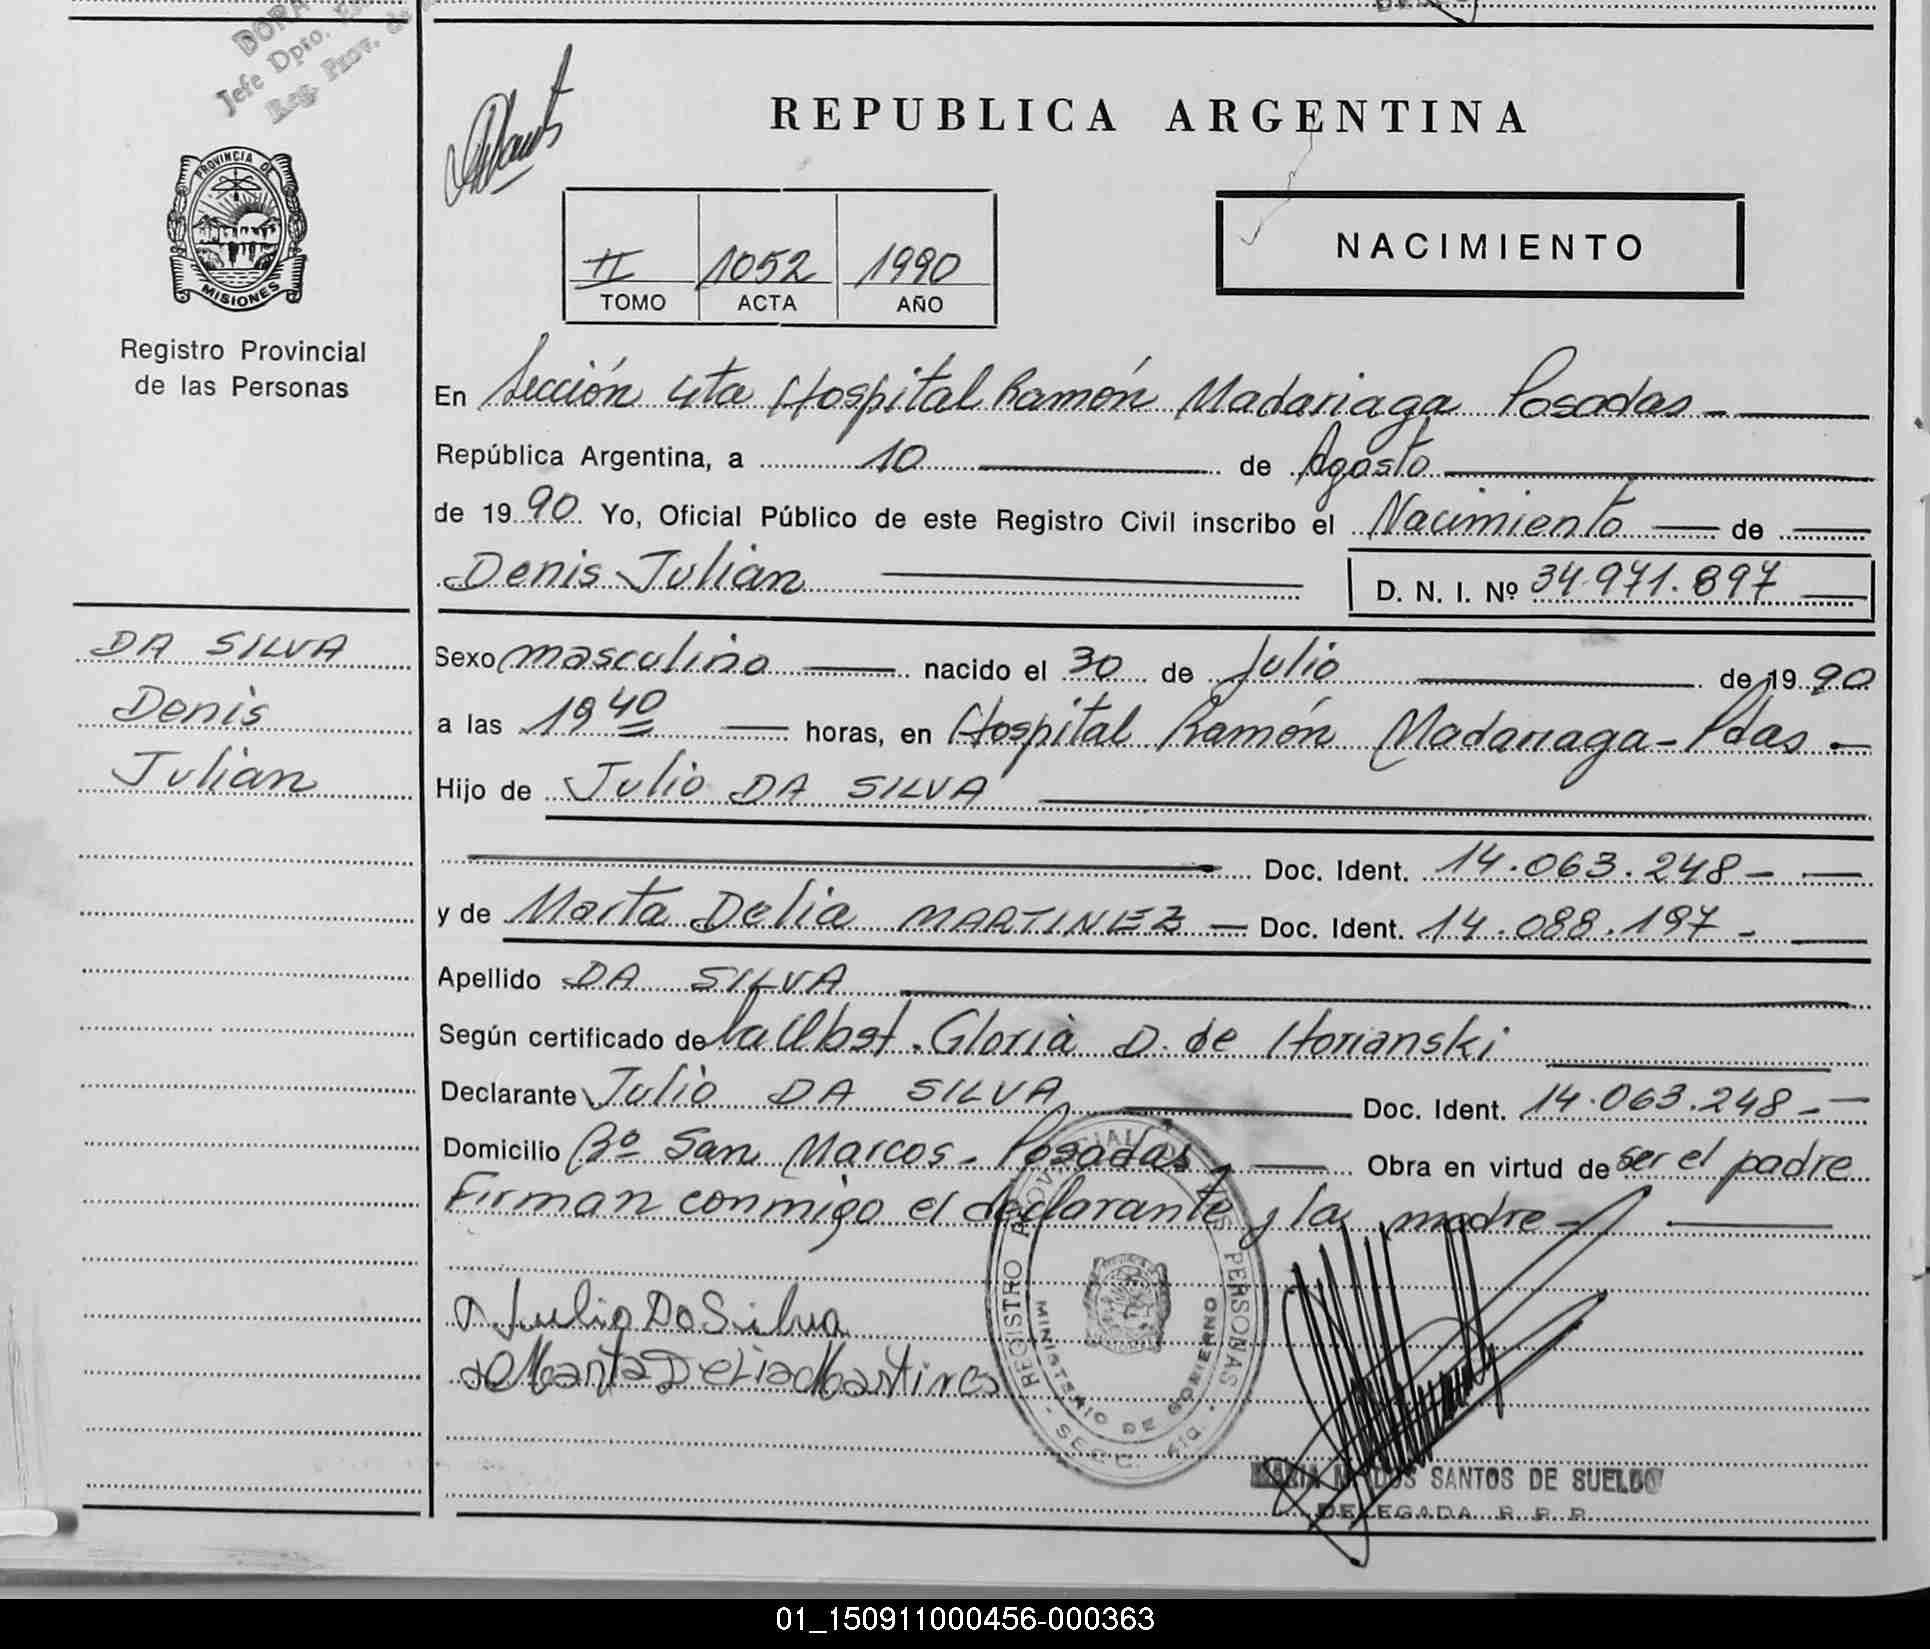 Jefe Dpto.
Reg. Prov. de
PROVINCIA DE
MISIONES
Registro Provincial
de las Personas
REPUBLICA ARGENTINA
II 1052 1990
TOMO ACTA AÑO
NACIMIENTO
En Sección 4ta Hospital Ramón Madariaga Posadas
República Argentina, a 10 de Agosto
de 1990 Yo, Oficial Público de este Registro Civil inscribo el Nacimiento de
Denis Julian D. N. I. Nº 34.971.897
DA SILVA
Denis
Julian
Sexo masculino nacido el 30 de Julio de 1990
a las 19 40 horas, en Hospital Ramón Madariaga - Pdas.
Hijo de Julio DA SILVA
Doc. Ident. 14.063.248
y de Marta Delia MARTINEZ Doc. Ident. 14.088.197
Apellido DA SILVA
Según certificado de la Obst. Gloria D. de Horianski
Declarante Julio DA SILVA Doc. Ident. 14.063.248
Domicilio Bº San Marcos - Posadas Obra en virtud de ser el padre
Firman conmigo el declarante y la madre
Julio Da Silva
Marta Delia Martines
REGISTRO PROVINCIAL DE LAS PERSONAS
MINISTERIO DE GOBIERNO
SECC. 4ta.
MARIA M. DOS SANTOS DE SUELDO
DELEGADA R. P. P.
01_150911000456-000363